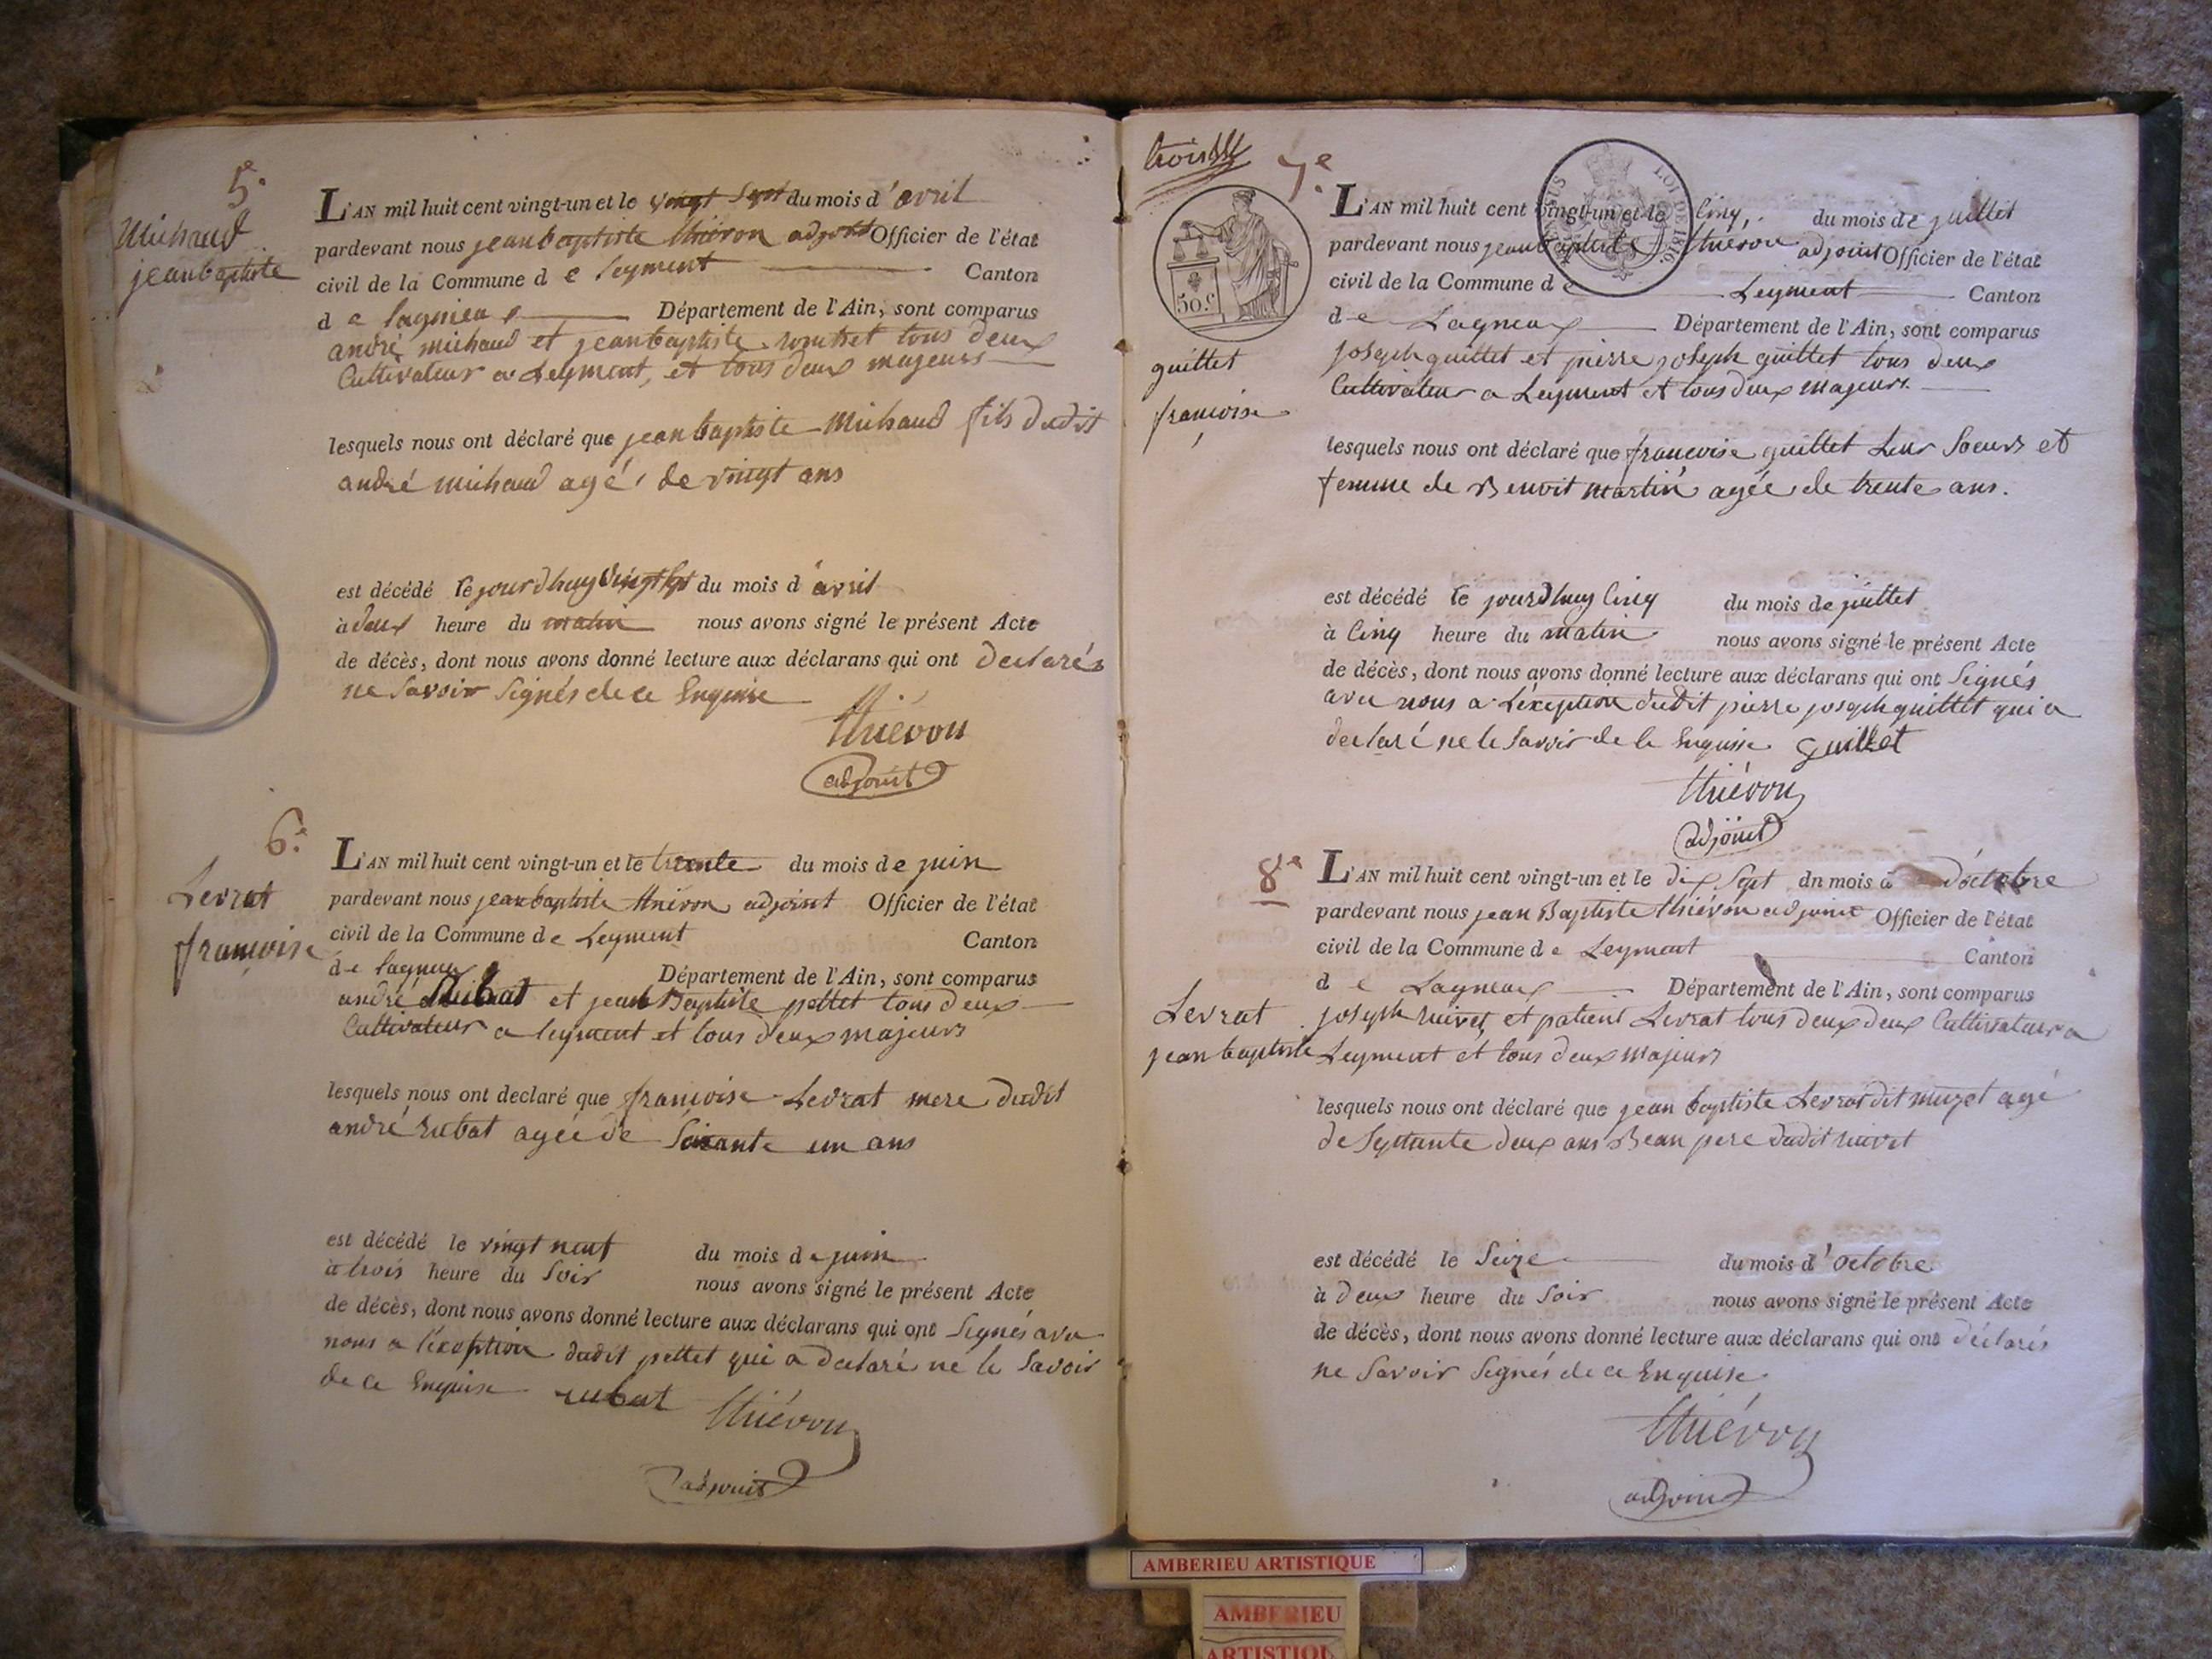 5.
Michaud
jeanbaptiste
L'AN mil huit cent vingt-un et le vingt Sept du mois d'avril
pardevant nous jeanbaptiste thiévon adjoint Officier de l'état
civil de la Commune de Leyment Canton
de lagnieu Département de l'Ain, sont comparus
andré michaud et jeanbaptiste tous deux
Cultivateur a Leyment, et tous deux majeurs
lesquels nous ont déclaré que jeanbaptiste Michaud fils dudit
andré michaud agé de vingt ans
est décédé le jourdhuy vingt Sept du mois d'avril
à deux heure du matin nous avons signé le présent Acte
de décès, dont nous avons donné lecture aux déclarans qui ont declarés
ne Savoir Signés de ce Enquise
thiévon
adjoint
6.
Levrat
francoise
L'AN mil huit cent vingt-un et le trente du mois de juin
pardevant nous jeanbaptiste thiévon adjoint Officier de l'état
civil de la Commune de Leyment Canton
de lagneu Département de l'Ain, sont comparus
andré Rubat et jean Baptiste pettet tous deux
Cultivateur a leyment et tous deux majeurs
lesquels nous ont declaré que francoise Levrat mere dudit
andré rubat agée de Soixante un ans
est décédé le vingt neuf du mois de juin
à trois heure du Soir nous avons signé le présent Acte
de décès, dont nous avons donné lecture aux déclarans qui ont Signés avec
nous a l'éxception dudit pettet qui a declaré ne le Savoir
de ce Enquise rubat thiévon
adjoint
7e
50 c.
LOI DE 1816.
guillet
francoise
L'AN mil huit cent vingt-un et le Cinq, du mois de juillet
pardevant nous jeanbaptiste thiévon adjoint Officier de l'état
civil de la Commune de Leyment Canton
de Lagneux Département de l'Ain, sont comparus
joseph guillet et pierre joseph guillet tous deux
Cultivateur a Leyment et tous deux majeurs
lesquels nous ont déclaré que francoise guillet Leur Soeurs et
femme de Benoit Martin agée de trente ans.
est décédé le jourdhuy Cinq du mois de juillet
à Cinq heure du matin nous avons signé le présent Acte
de décès, dont nous avons donné lecture aux déclarans qui ont Signés
avec nous a L'éxception dudit pierre joseph guillet qui a
declaré ne le Savoir de le Enquise guillet
thiévon
adjoint
8e
Levrat
jean baptiste
L'AN mil huit cent vingt-un et le dix Sept du mois d'octobre
pardevant nous jean Baptiste thiévon adjoint Officier de l'état
civil de la Commune de Leyment Canton
de Lagneux Département de l'Ain, sont comparus
joseph nivet et patient Levrat tous deux deux Cultivateur a
Leyment et tous deux majeurs
lesquels nous ont déclaré que jean baptiste Levrat dit agé
de Septante deux ans Beau pere dudit nivet
est décédé le Seize du mois d'octobre
à deux heure du Soir nous avons signé le présent Acte
de décès, dont nous avons donné lecture aux déclarans qui ont déclarés
ne Savoir Signés de ce Enquise
thiévon
adjoint
AMBERIEU ARTISTIQUE
AMBERIEU
ARTISTIQU